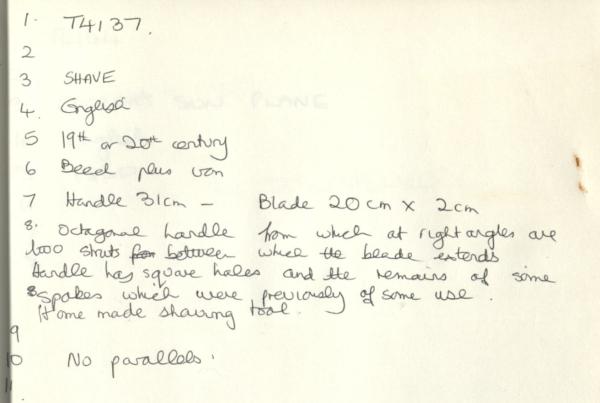 1. T4137.
2
3 SHAVE
4. English
5 19th or 20th century
6 Beech plus iron
7 Handle 31cm - Blade 20cm x 2cm
8. Octagonal handle from which at right angles are
two struts for between which the blade extends
Handle has square holes and the remains of some
8 Spokes which were previously of some use.
Home made shaving tool.
9
10 No parallels.
11
SUN PLANE